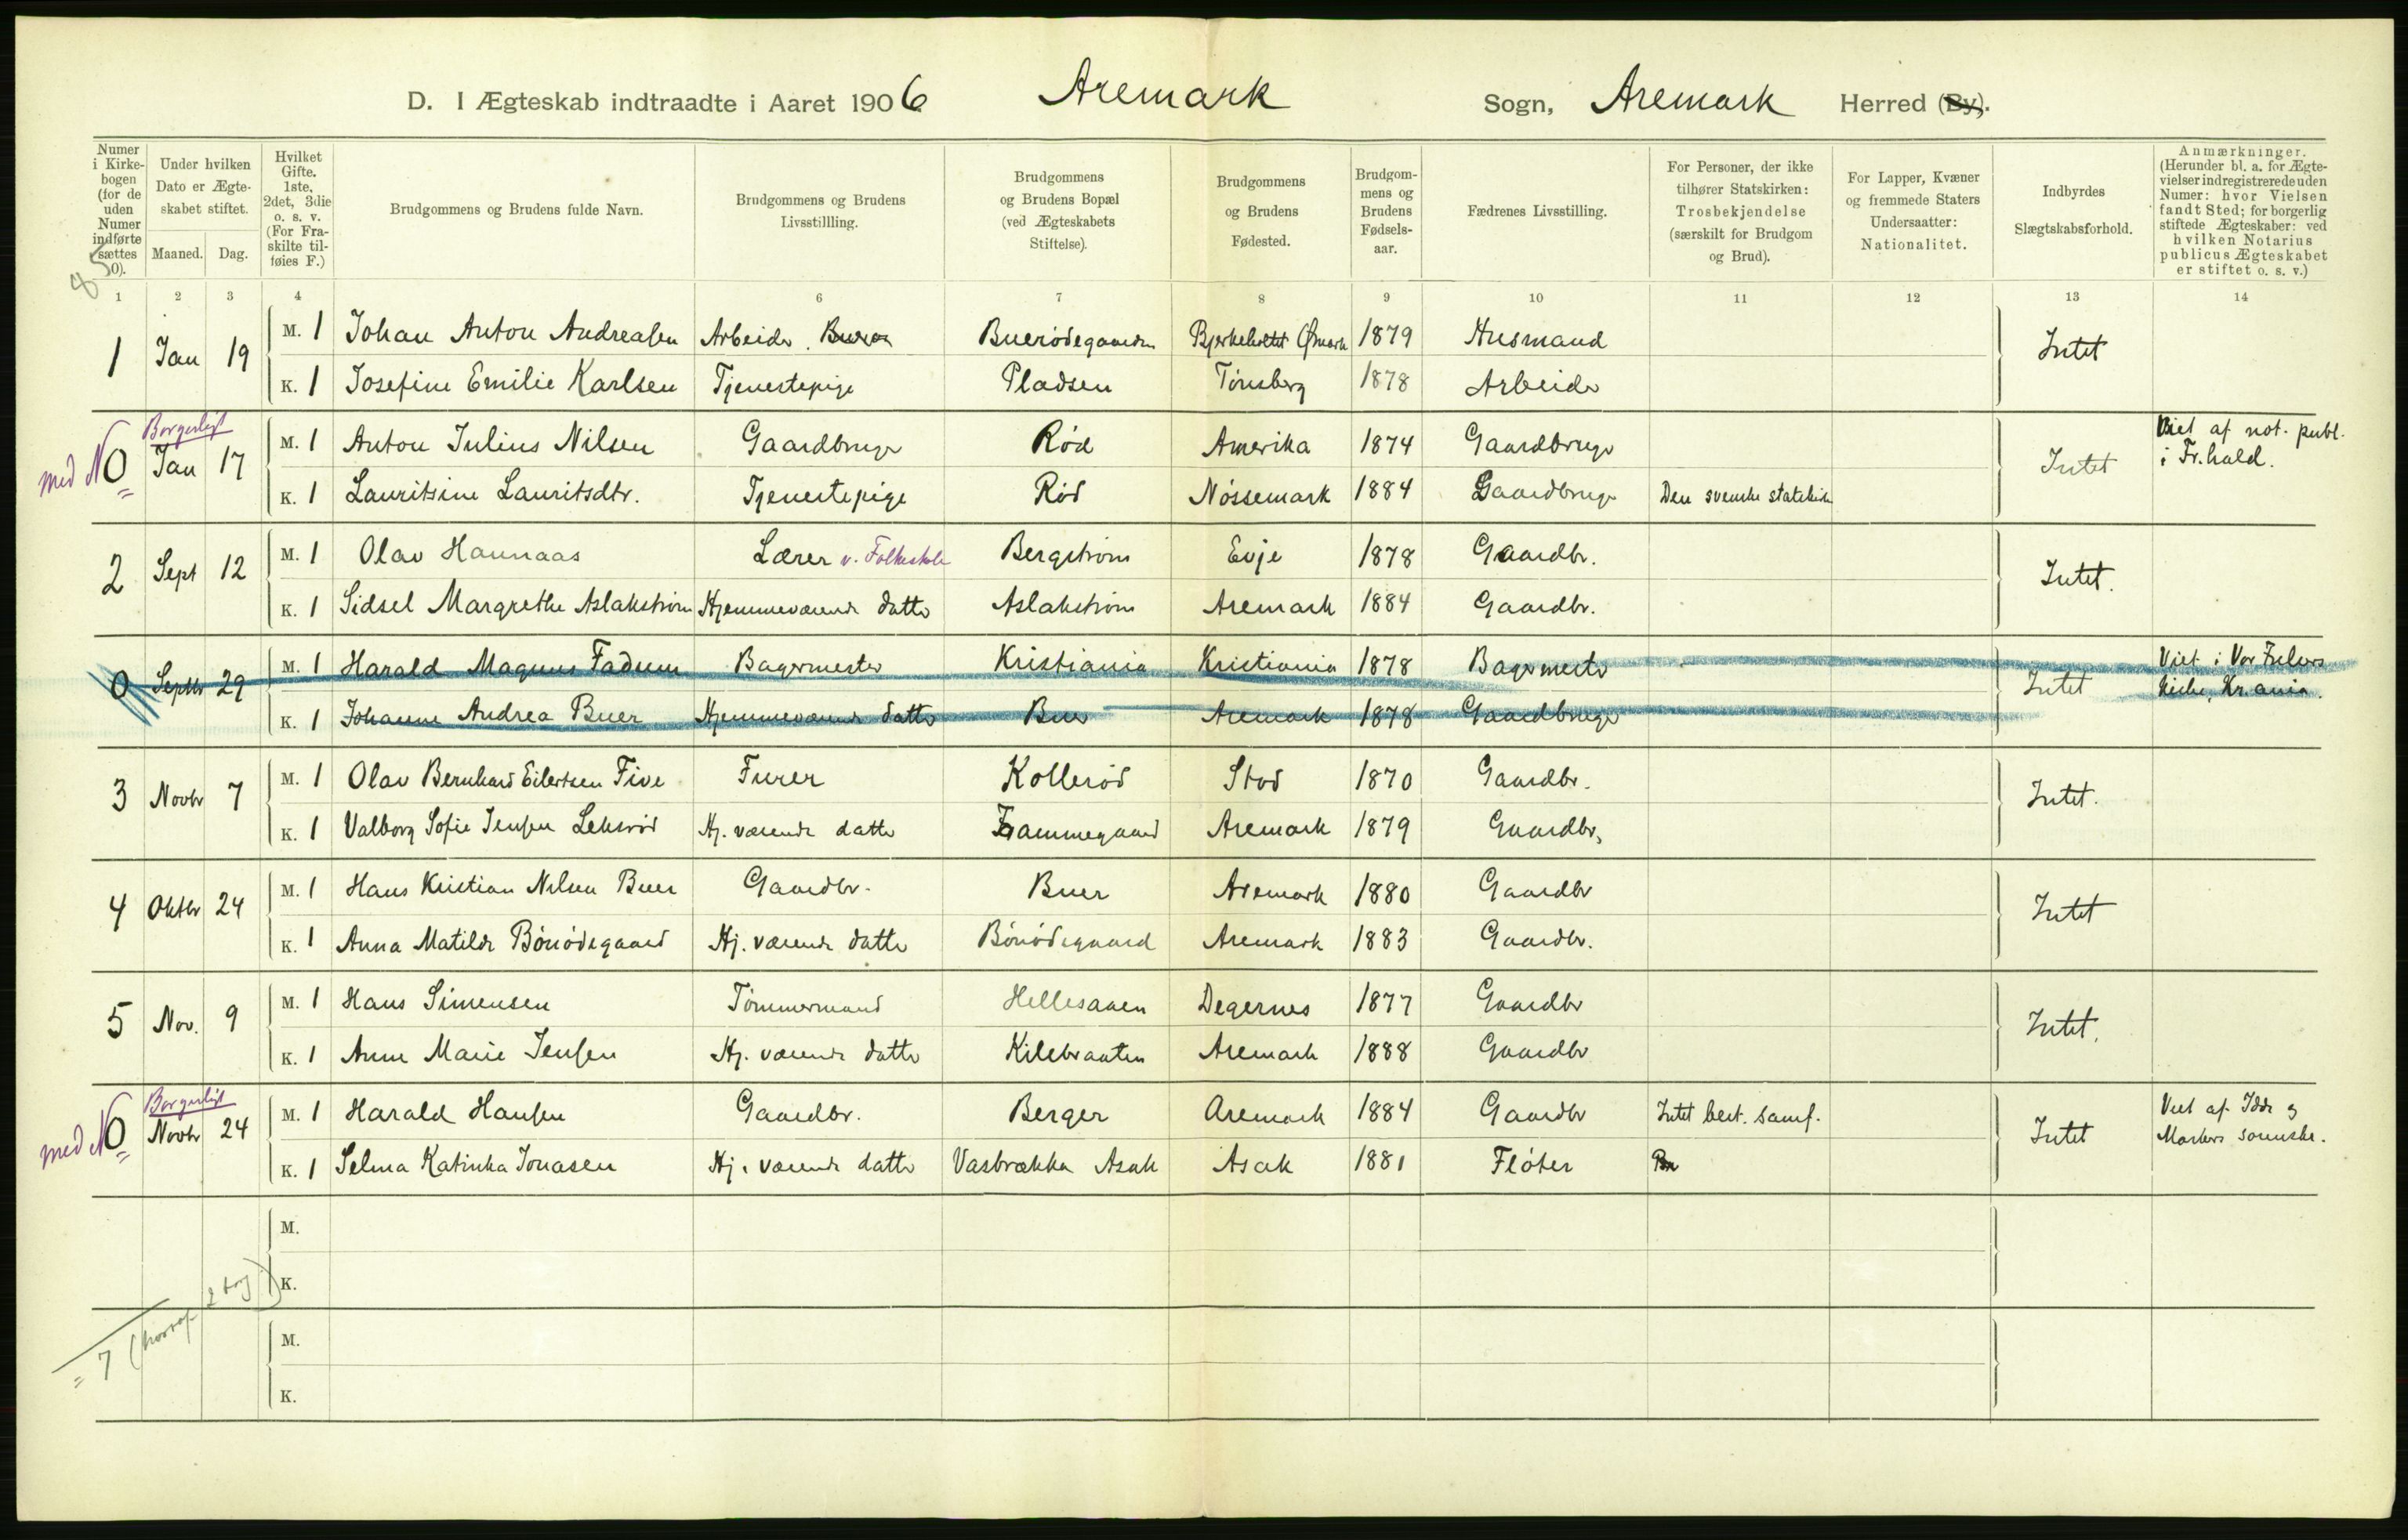 D. I Ægteskab indtraadte i Aaret 1906 Aremark Sogn, Aremark Herred (By).
Numer i Kirkebogen (for de uden Numer indførte sættes 0).
Under hvilken Dato er Ægteskabet stiftet.
Maaned. Dag.
Hvilket Gifte. 1ste, 2det, 3die o. s. v. (For Fraskilte tilføies F.)
Brudgommens og Brudens fulde Navn.
Brudgommens og Brudens Livsstillling.
Brudgommens og Brudens Bopæl (ved Ægteskabets Stiftelse).
Brudgommens og Brudens Fødested.
Brudgommens og Brudens Fødselsaar.
Fædrenes Livsstilling.
For Personer, der ikke tilhører Statskirken: Trosbekjendelse (særskilt for Brudgom og Brud).
For Lapper, Kvæner og fremmede Staters Undersaatter: Nationalitet.
Indbyrdes Slægtskabsforhold.
Anmærkninger. (Herunder bl. a. for Ægtevielser indregistrerede uden Numer: hvor Vielsen fandt Sted; for borgerlig stiftede Ægteskaber: ved hvilken Notarius publicus Ægteskabet er stiftet o. s. v.)
1 2 3 4 6 7 8 9 10 11 12 13 14
1 Jan 19 M. 1 Johan Anton Andreasen Arbeider Buerødegaarden Ømark 1879 Husmand Intet
K. 1 Josefine Emilie Karlsen Tjenestepige Pladsen Tønsberg 1878 Arbeider
med N 0 Borgerligt Jan 17 M. 1 Anton Julius Nilsen Gaardbruger Rød Amerika 1874 Gaardbruger Intet Viet af not. publ. i Fr.hald.
K. 1 Lauritsine Lauritsdtr. Tjenestepige Rød Nössemark 1884 Gaardbruger Den svenske statskirke
2 Sept 12 M. 1 Olav Haunaas Lærer v. Folkeskole Bergstrøm Evje 1878 Gaardbr. Intet.
K. 1 Sidsel Margrethe Aslakstrøm Hjemmeværende datter Aslakstrøm Aremark 1884 Gaardbr.
0 Septbr 29 M. 1 Harald Magnus Fadum Bagermester Kristiania Kristiania 1878 Bagermester Intet Viet i Vor Frelsers kirke, Kr.ania.
K. 1 Johanne Andrea Buer Hjemmeværende datter Buer Aremark 1878 Gaardbruger
3 Novbr 7 M. 1 Olav Bernhard Eilertsen Five Furer Kollerød Stod 1870 Gaardbr. Intet.
K. 1 Valborg Sofie Jensen Leksrød Hj. værende datter Frammegaard Aremark 1879 Gaardbr.
4 Oktbr 24 M. 1 Hans Kristian Nilsen Buer Gaardbr. Buer Aremark 1880 Gaardbr Intet
K. 1 Anna Matilde Bönödegaard Hj. værende datter Bönödegaard Aremark 1883 Gaardbr.
5 Nov. 9 M. 1 Hans Simensen Tømmermand Hellesaaen Degernes 1877 Gaardbr Intet.
K. 1 Anne Marie Jensen Hj. værende datter Kilebraaten Aremark 1888 Gaardbr
med N 0 Borgerligt Novbr 24 M. 1 Harald Hansen Gaardbr. Berger Aremark 1884 Gaardbr Intet best. samf. Intet Viet af Idde og Markers sorenskr.
K. 1 Selma Katinka Jonasen Hj. værende datter Vasbrækka Asak Asak 1881 Fløter
M.
K.
= 7 (hvoraf 2 brg)
M.
K.